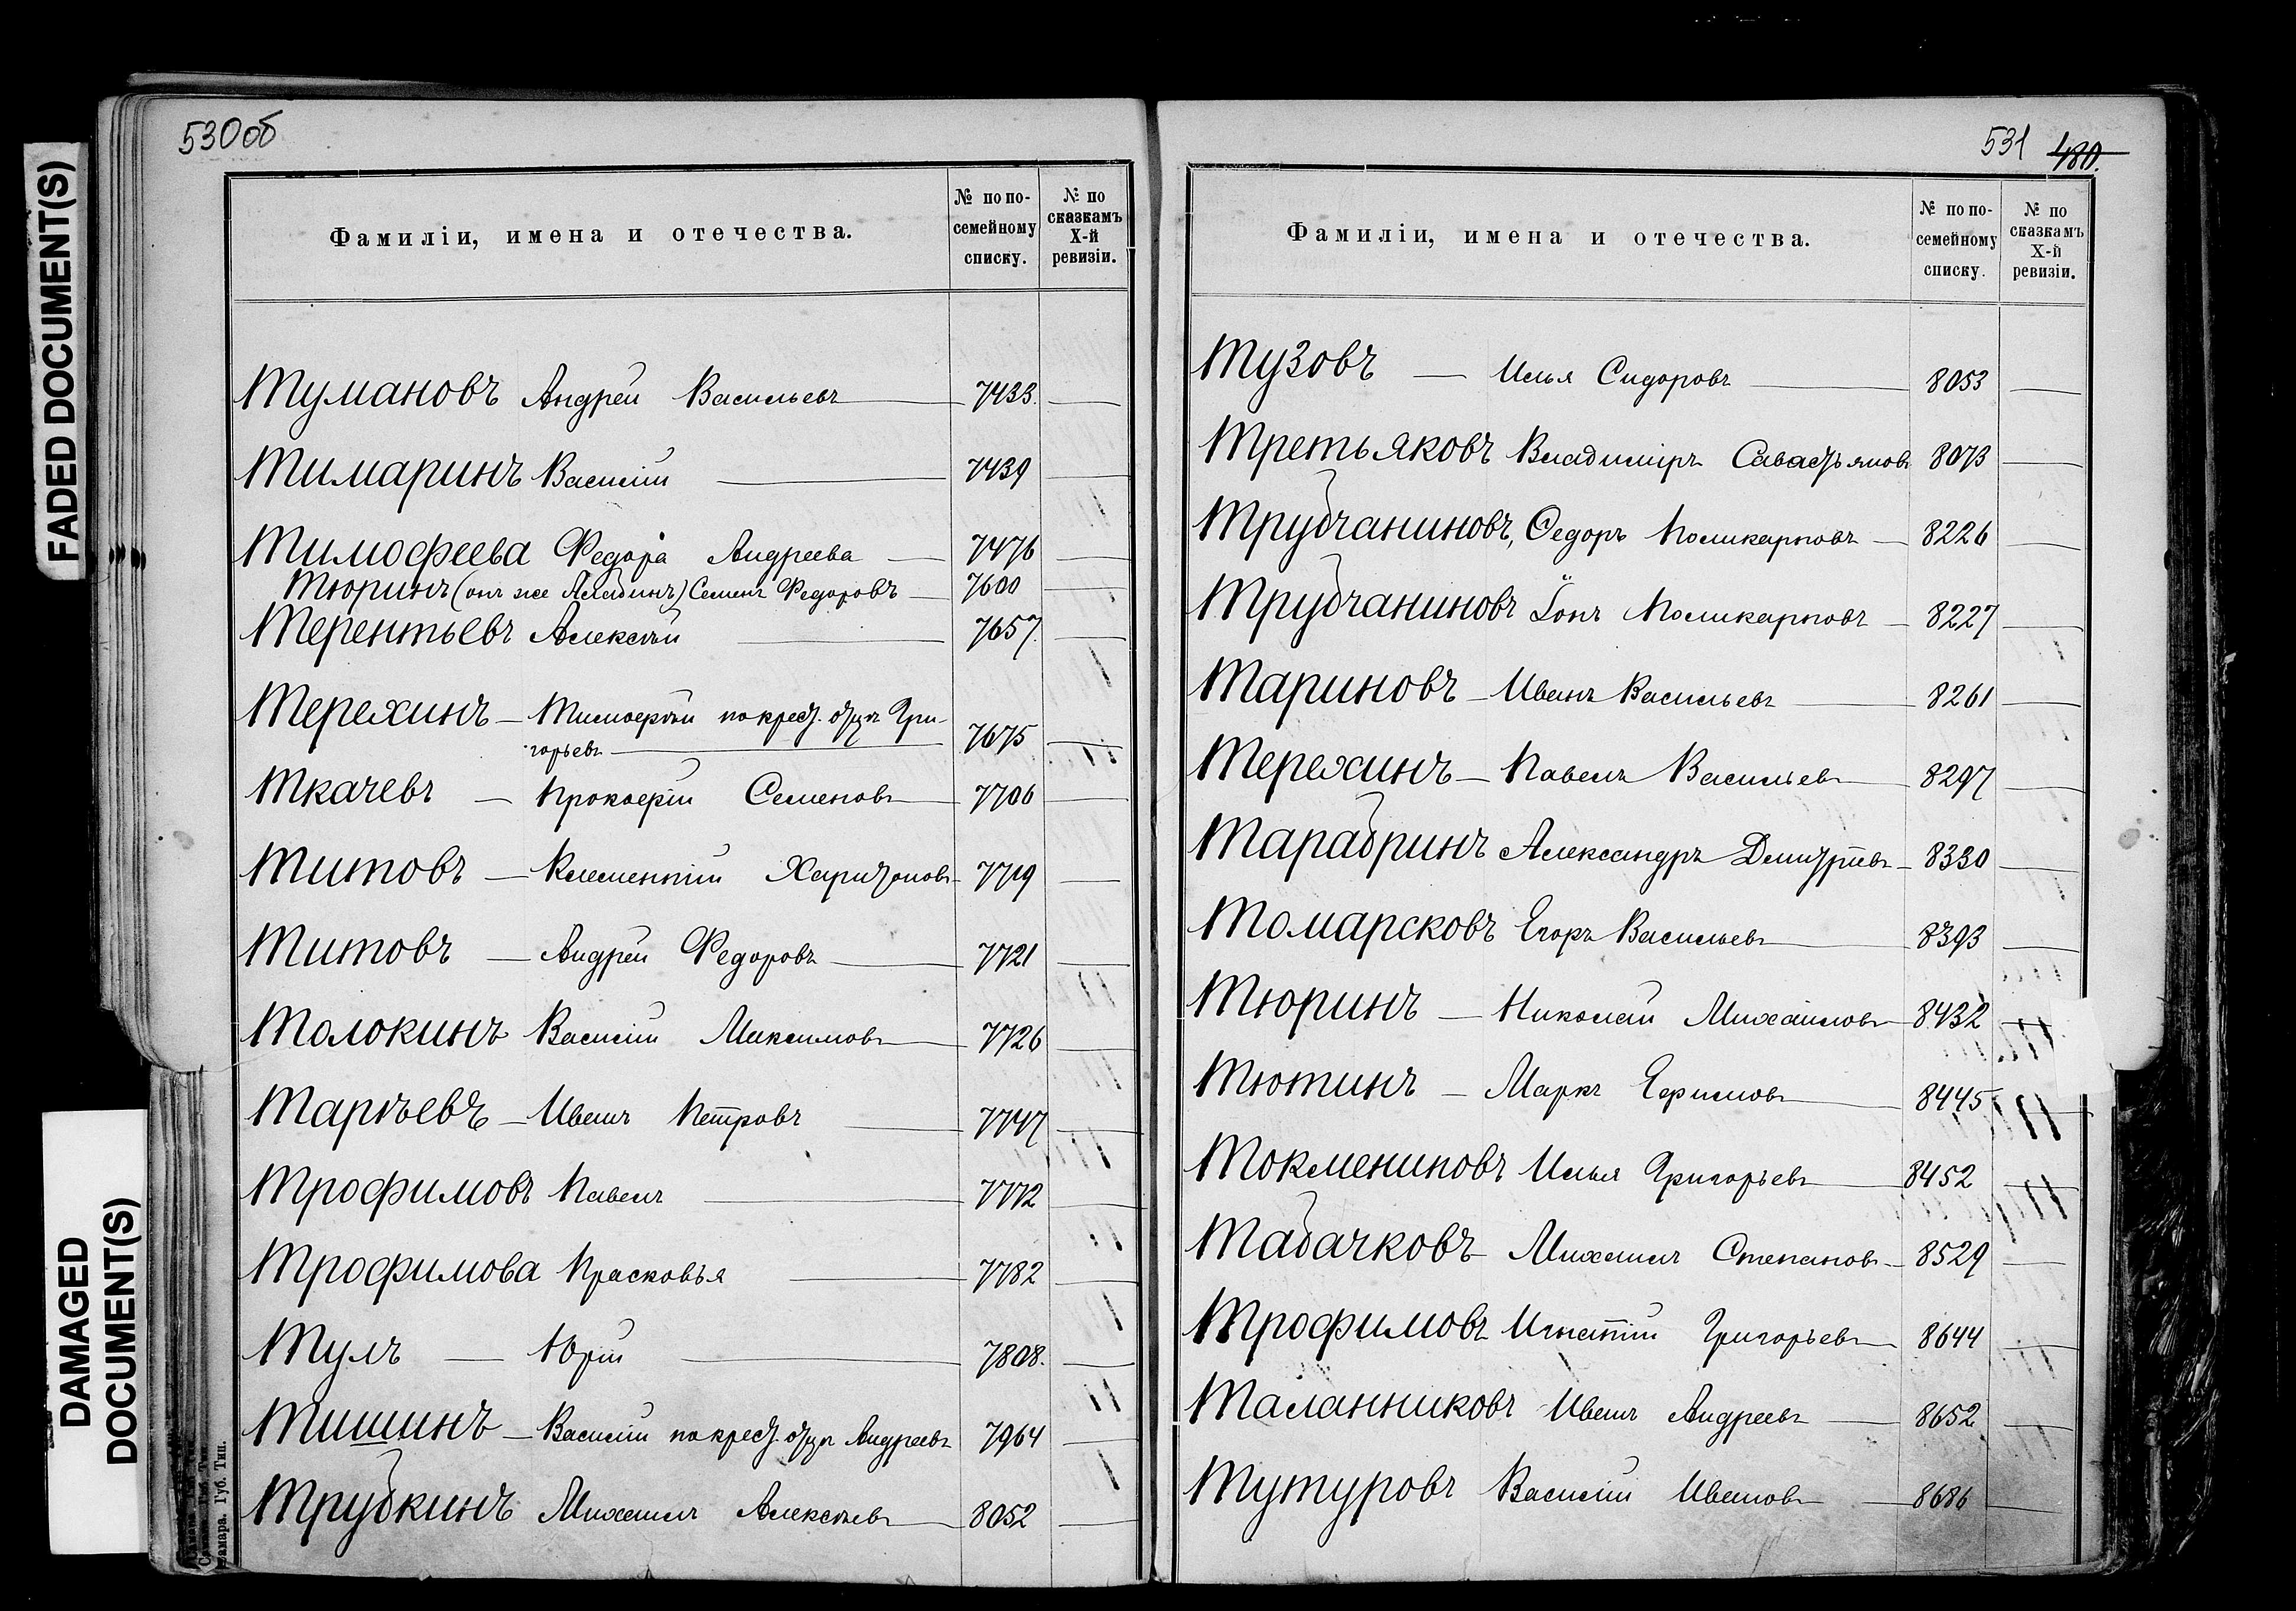 FADED DOCUMENT(S)
DAMAGED
DOCUMENT(S)
530об
Фамиліи, имена и отечества.
№ по по-
семейному
списку.
№ по
сказкамъ
X-й
ревизіи.
Тумановъ Андрей Васильевъ 7433.
Тимаринъ Василій 7439
Тимофеева Федора Андреева 7476
Тюринъ (онъ же) Семенъ Федоровъ 7600
Терентьевъ Алексѣй 7657.
Терехинъ Тимоѳѣй по крест. отцу Гри-
горьевъ 7675
Ткачевъ Прокофій Семеновъ 7706
Титовъ Клементій Харитоновъ 7719
Титовъ Андрей Федоровъ 7721
Толокинъ Василій Максимовъ 7726
Таргѣевъ Иванъ Петровъ 7747
Трофимовъ Павелъ 7772
Трофимова Прасковья 7782
Тулъ Юрій 7808.
Тишинъ Василій по крест. отцу Андреевъ 7964
Трубкинъ Михаилъ Алексѣевъ 8052
Самара. Губ. Тип.
531 480.
Фамиліи, имена и отечества.
№ по по-
семейному
списку.
№ по
сказкамъ
X-й
ревизіи.
Тузовъ Илья Сидоровъ 8053
Третьяковъ Владиміръ Савастьяновъ 8073
Трубчаниновъ, Федоръ Поликарповъ 8226
Трубчаниновъ Іонъ Поликарповъ 8227
Тариновъ Иванъ Васильевъ 8261
Терехинъ Павелъ Васильевъ 8297
Тарабринъ Александръ Дмитріевъ 8330
Томарсковъ Егоръ Васильевъ 8393
Тюринъ Николай Михайловъ 8432
Тютинъ Маркъ Ефимовъ 8445
Токмениновъ Илья Григорьевъ 8452
Табачковъ Михаилъ Степановъ 8529
Трофимовъ Игнатій Григорьевъ 8644
Таланниковъ Иванъ Андреевъ 8652
Тутуровъ Василій Ивановъ 8686